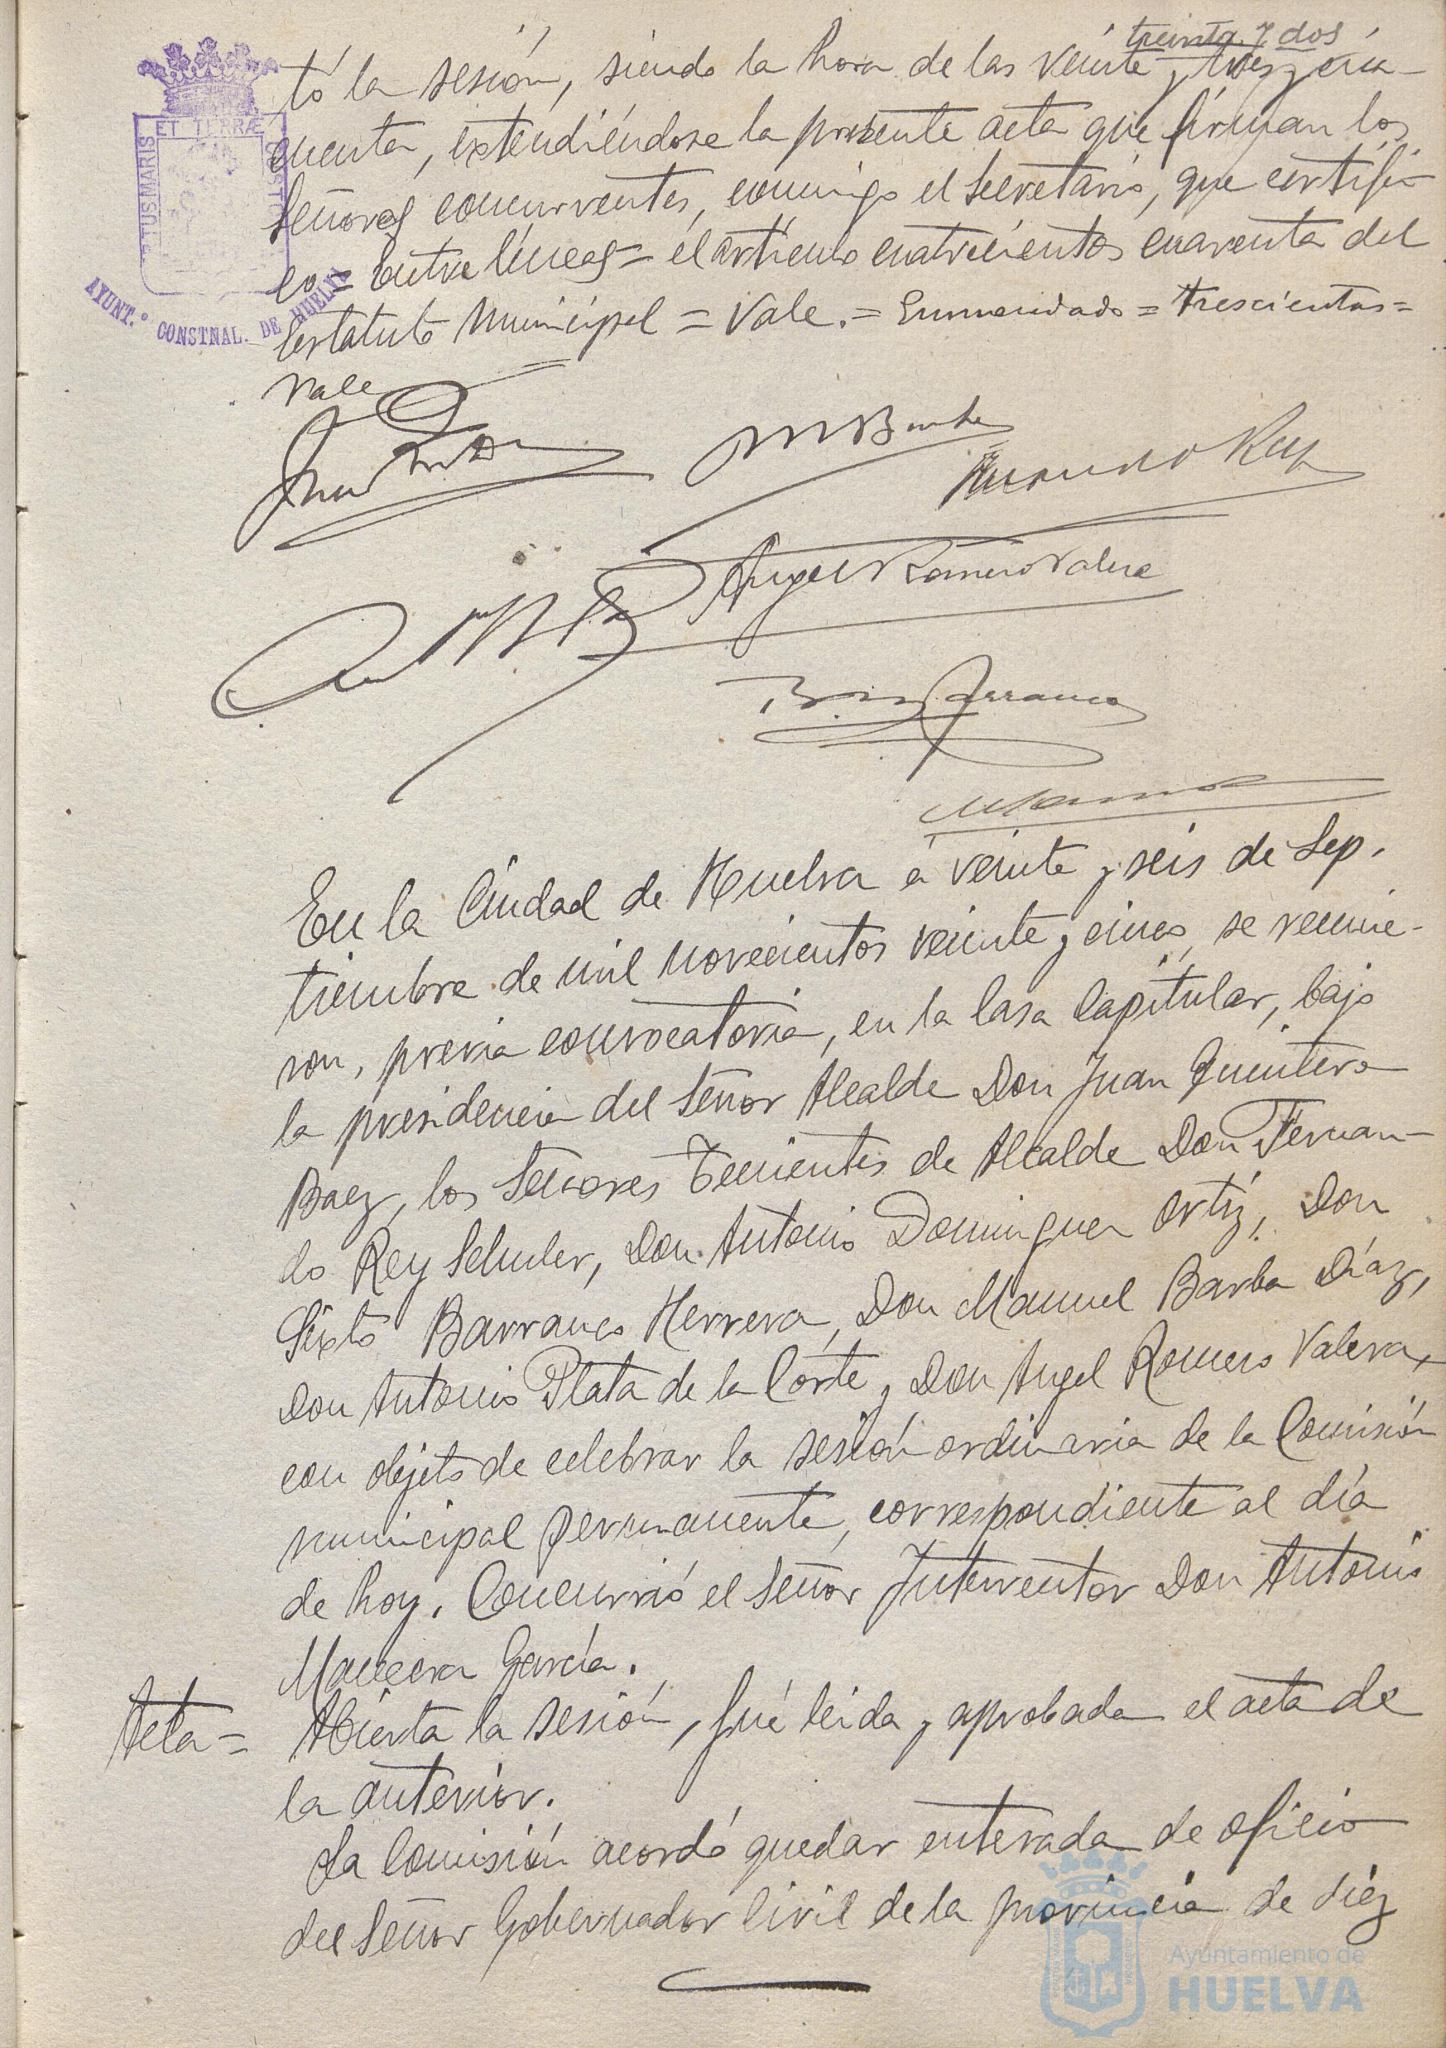 treinta y dos
tó la sesión, siendo la hora de las veinte y tres y cin-
cuenta, extendiéndose la presente acta que firman los
Señores concurrentes, conmigo el Secretario, que certifi-
co = Entre líneas = el artículo cuatrocientos cuarenta del
Estatuto Municipal = Vale. = Enmendado = trescientas =
Vale
PORTUS MARIS ET TERRÆ CUSTODIA
AYUNT.º CONSTNAL. DE HUELVA
M Barba
Fernando Rey
Angel Romero Valera
Barranco
En la Ciudad de Huelva á veinte y seis de Sep.
tiembre de mil novecientos veinte y cinco, se reunie-
ron, previa convocatoria, en la Casa Capitular, bajo
la presidencia del Señor Alcalde Don Juan Quintero
Baez, los Señores Tenientes de Alcalde Don Fernan-
do Rey Schuler, Don Antonio Dominguez Ortiz, Don
Sixto Barranco Herrera, Don Manuel Barba Díaz,
Don Antonio Plata de la Corte y Don Angel Romero Valera,
con objeto de celebrar la sesión ordinaria de la Comisión
municipal permanente, correspondiente al día
de hoy. Concurrió el Señor Interventor Don Antonio
García.
Acta = Abierta la sesión, fué leida y aprobada el acta de
la anterior.
La Comisión acordó quedar enterada de oficio
del Señor Gobernador Civil de la provincia de diez
Ayuntamiento de
HUELVA